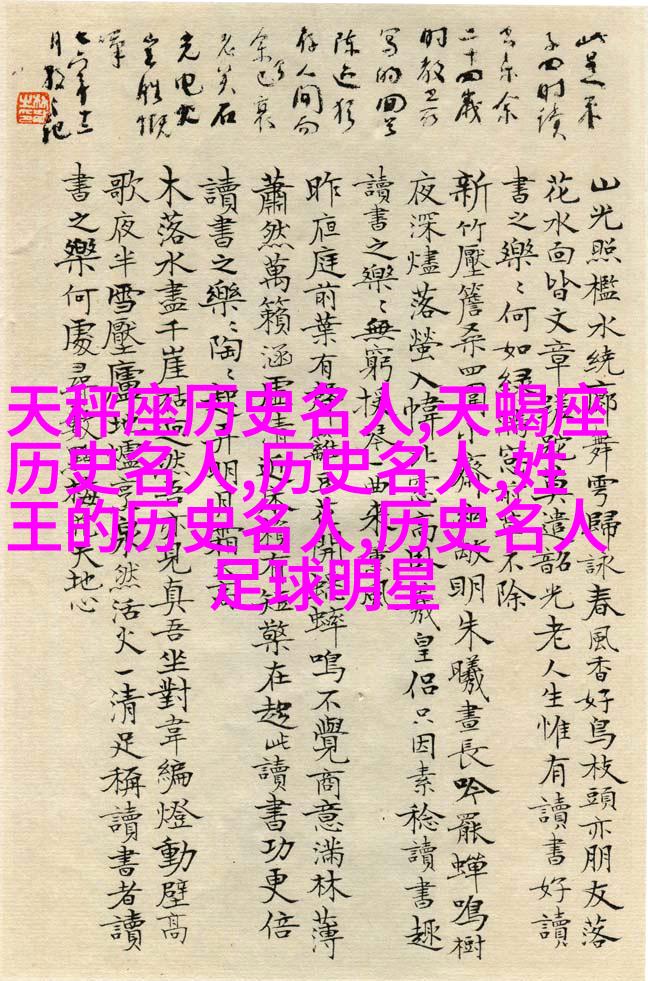 此是朱
子四时读
书乐余
二十四歲
时教
写的回
陈迹犹
存人间而
余已衰
老矣石
光电火
岂胜慨
嘆
七六年十二
月
山光照檻水繞廊舞雩歸詠春風香好鳥枝頭亦朋友落
花水面皆文章蹉跎莫遣韶光老人生惟有讀書好讀
書之樂〻何如綠滿窗前草不除
新竹壓簷桑四圍小齋幽敞明朱曦晝長吟罷蟬鳴樹
夜深燼落螢入幃北窗高臥羲皇侶只因素稔讀書趣
讀書之樂〻無窮撫琴一曲來薰風
昨夜庭前葉有聲籬豆花開蟋蟀鳴不覺商意滿林薄
蕭然萬籟涵虛清近床賴有短檠在趁此讀書功更倍
讀書之樂〻陶〻起弄明月霜天高
木落水盡千崖枯迥然吾亦見真吾坐對韋編燈動壁高
歌夜半雪壓廬地爐然活火一清足稱讀書者讀
書之樂何處尋數點梅花天地心
天秤座历史名人,天蝎座
历史名人,历史名人,姓
王的历史名人,历史名人
足球明星